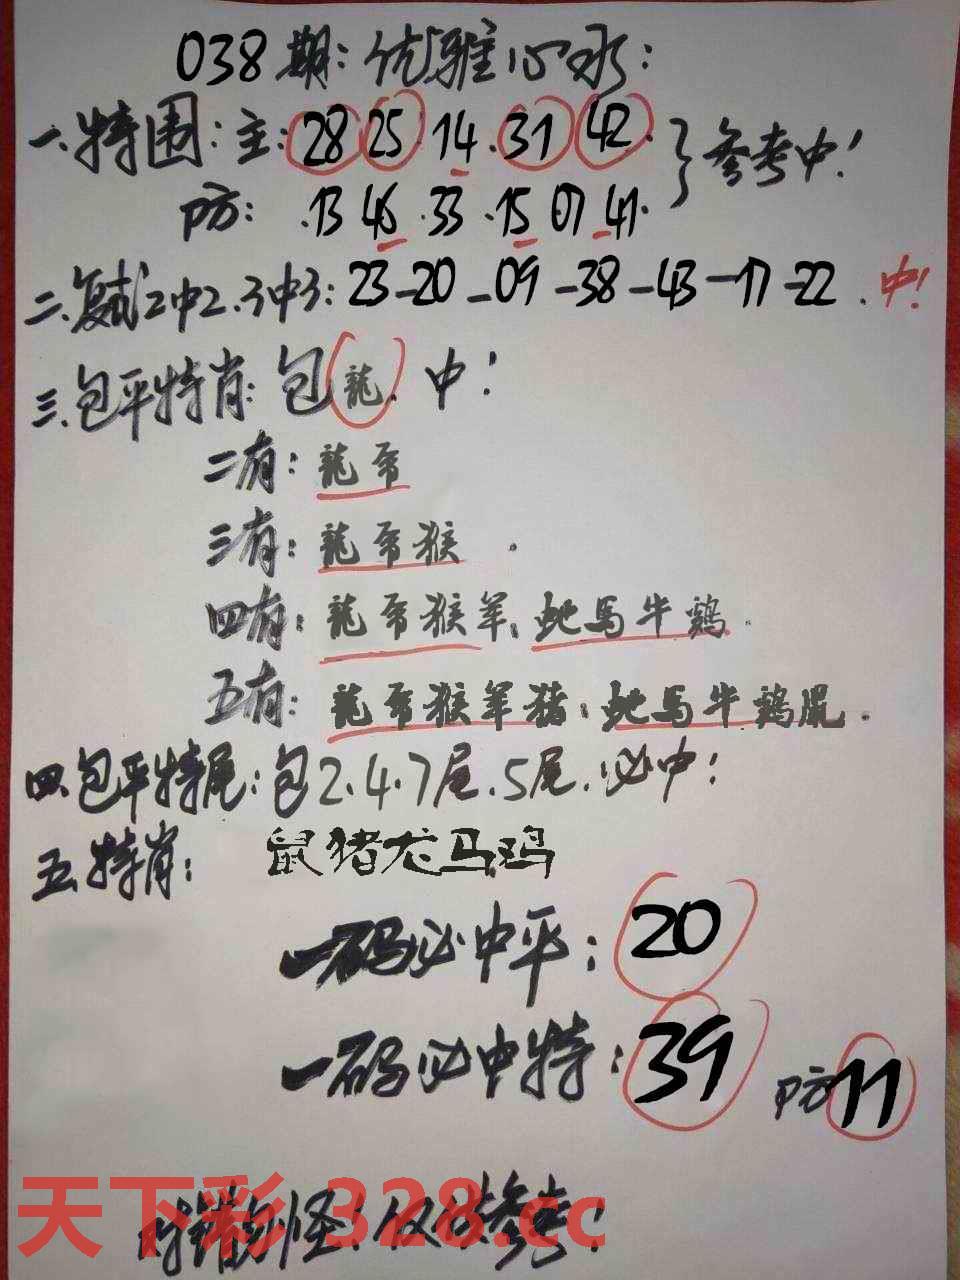 038期:优雅心水:
一.特围:主:28 25 14.31 42.
参考中!
防: .13 46 .33 .15 07 41.
二.复式2中2.3中3: 23-20-09-38-43-17-22.中!
三.包平特肖:包龍.中!
二有:龍帝
三有:龍帝猴.
四有:龍帝猴羊;蛇馬牛鶏.
五有:龍帝猴羊猪;蛇馬牛鶏鼠.
四.包平特尾:包2.4.7尾.5尾.必中!
五.特肖:鼠猪龙马鸡
一码必中平:20
一码必中特:39 防11
对错勿怪!仅供参考!
天下彩 328.cc